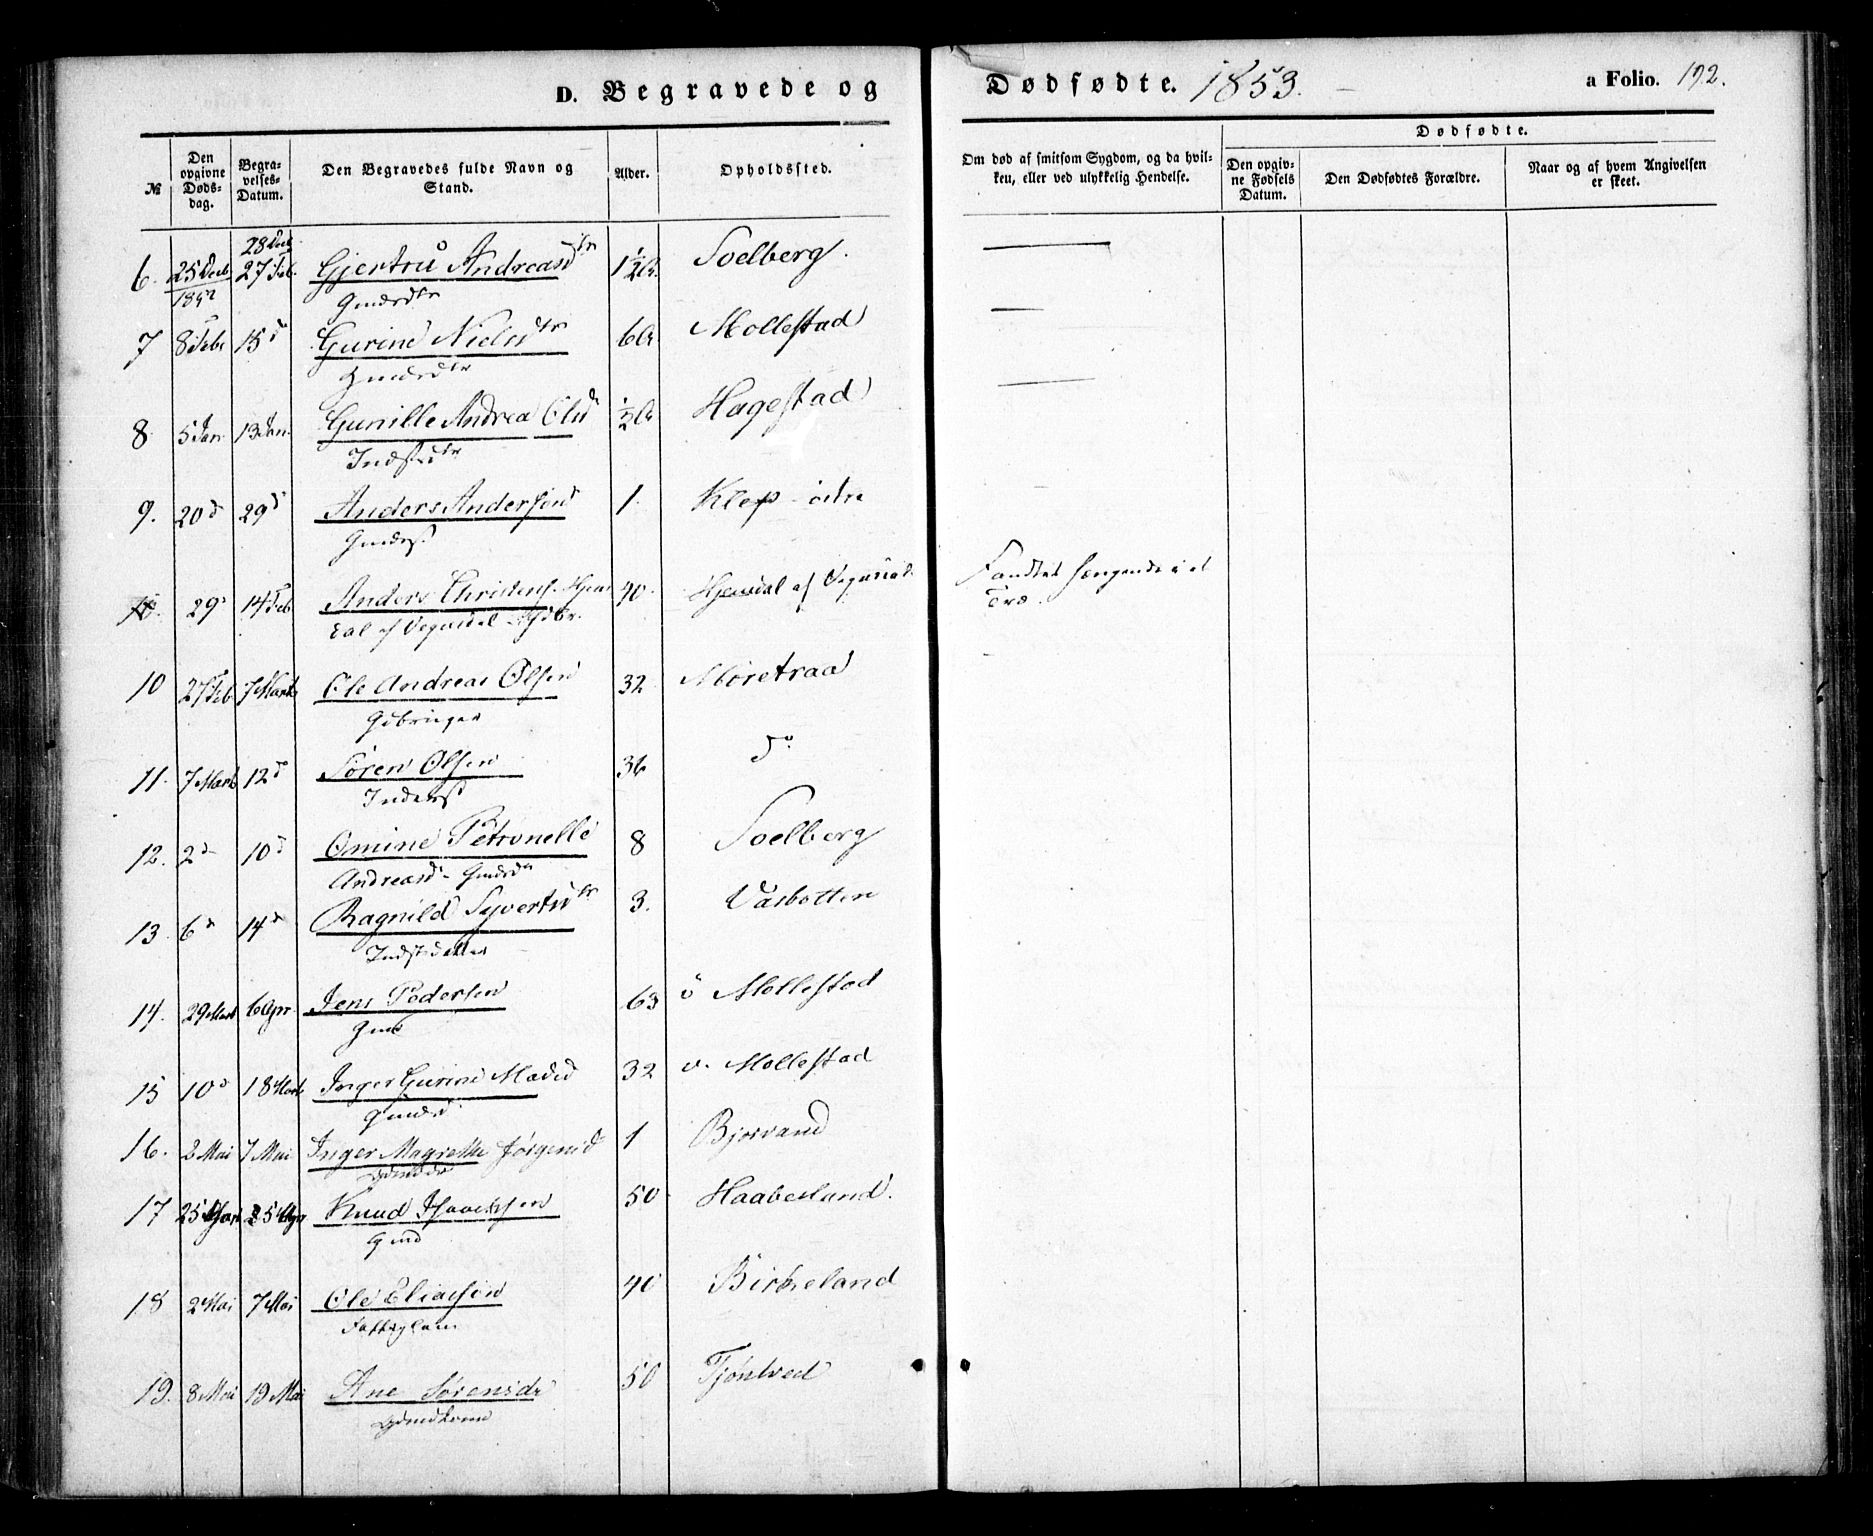 D. Begravede og Dødfødte. 1853. a Folio. 192.
№
Den opgivne Døds-dag.
Begra-velses-Datum.
Den Begravedes fulde Navn og Stand.
Alder.
Opholdssted.
Om død af smitsom Sygdom, og da hvil-ken, eller ved ulykkelig Hendelse.
Dødfødte.
Den opgiv-ne Fødsels Datum.
Den Dødfødtes Forældre.
Naar og af hvem Angivelsen er skeet.
28 Decb
6. 25 Decb 27 Feb. Gjertru Andreasdtr 1½ Soelberg.
1852 Gmdsdtr
7 8 Febr 15 d Gurine Nielsdtr 6 Mollestad
Gmdsdtr
8. 5 Jan. 13 Jan. Gunille Andrea Olsd ½ Hagestad
Indstdtr
9. 20 d 29 d Anders Andersen 1. Klep
10. 29 d 14 Feb Anders Christens. 40. af Vegusdal Fandtes hængende i et
dal af Vegusdal Træ.
10 27 Feb 7 Marts Ole Andreas Olsen 32 Moretraa
11. 7 Marts 12 d Søren Olsen 36 do
Inderst
12. 2 d 10 d Omine Petronelle 8 Soelberg
Andreasd - Gmdsdtr
13. 6 d 14 d Ragnild Syvertsdtr 3. Vasbotten
Indstdatter
14. 29 Marts 6 Apr. Jens Pedersen 63 ö Mollestad
Gmd
15 10 d 18 Marts Inger Gurine Madsd 32 v. Mollestad
16. 2 Mai 7 Mai Inger Magrethe Jørgensd 1 Bjorvand
17 25 5 Apr Knud 50 Haabesland.
Gmd
18 2 Mai 7 Mai Ole Eliassen 40 Birkeland
Fattiglem
19. 8 Mai 19 Mai Ane Sørensdr 50 Tjønlved
Gmdkone